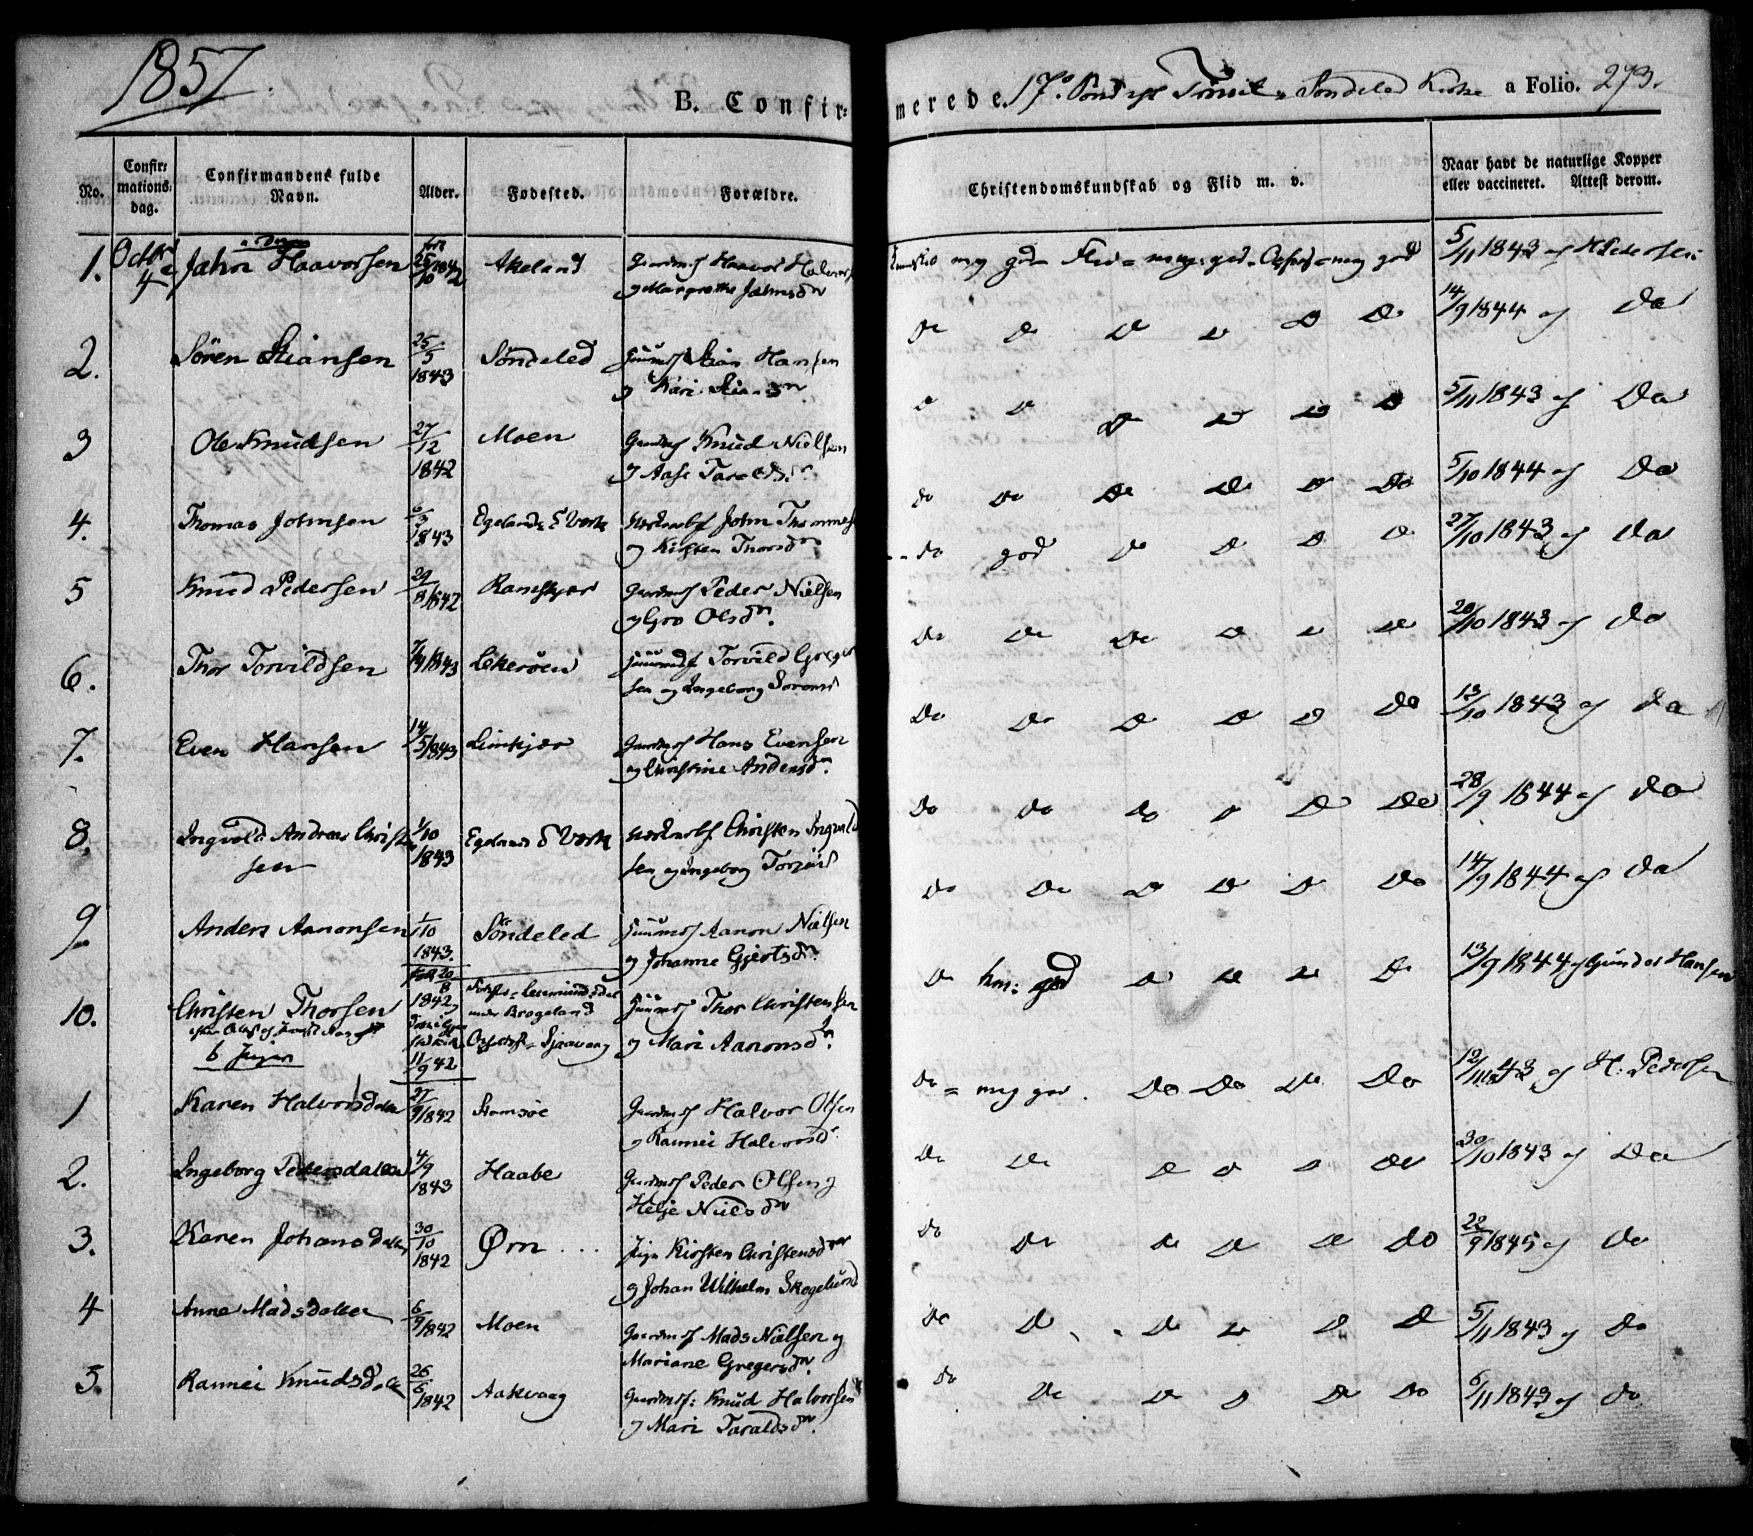 1857.
B. Confir=
merede. 17de Sönd. Trinit. Söndeled Kirke a Folio. 273.
No.
Confir=
mations=
dag.
Confirmandens fulde
Navn.
Alder.
Fødested.
Forældre.
Christendomskundskab og Flid m. v.
Naar havt de naturlige Kopper
eller vaccineret. Attest derom.
1. Octbr 4de Jahn Haavorsen 25/10 1842 Akeland Gaardmd Haavor
og Margrethe
meg god Flid = meg: god meg god 5/11 1843 af H Pedersen
2. Sören Stiansen 25/5 1843 Söndeled Huusmd Stian Hansen
og Kari
Do Do Do Do Do Do 14/9 1844 af Do
3 Ole Knudsen 27/12 1842 Moen Gaardmd Knud Nielsen
og Aase
Do Do Do Do Do Do 5/11 1843 af Do
4. Thomas Johnsen 1843 Egelands Værk John
og Kirsten Thorsdn
Do Do Do Do Do Do 5/10 1844 af Do
5 Knud Pedersen 29/8 1842 Ramskjær Gaardmd Peder Nielsen
og Gro Olsdn.
Do god Do Do Do Do 27/10 1843 af Do
6. Thor Torvildsen 1843 Lekeröen Huusmd Torvild Greger
sen og Ingeborg
Do Do Do Do Do Do 20/10 1843 af Do
7. Even Hansen 14/5 1843 Limkjær Gaardmd Hans Evensen
og Christine Andersdn.
Do Do Do Do Do Do 13/10 1843 af Do
8. Ingvold Andreas Christen
sen 1/10 1843 Egelands Værk Christen Ingvald
sen og Ingeborg
Do Do Do Do Do Do 28/9 1844 af Do
9 Anders Aanonsen 1/10 1843. Söndeled Huusmd Aanon Nielsen
og Johanne Gjertsdn.
Do Do Do Do Do Do 14/9 1844 af Do
10. Christen Thorsen 20/8 1842, 11/9 42 under Brogeland Huusmd Thor Christensen
og Mari Aanonsdn.
Do god Do Do Do Do 13/9 1844 af Gunder Hansen
6 Piger
1 Karen Halvorsdatter 27/9 1842 Gaardmd Halvor Olsen
og Rannei Halvorsd.
Do = meg god. Do Do Do Do 43 af H. Pedersen
2. Ingeborg Pedersdatter 4/9 1843 Haabe Gaardmd Peder Olsen og
Helje Nielsdn
Do Do Do Do Do Do 30/10 1843 af Do
3. Karen Johansdatter 30/10 1842 Örn . . . Pige Kirsten Christensd
og Johan Wilhelm Skogelund
Do Do Do Do Do Do 22/9 1845 af Do
4 Anne Madsdatter 6/9 1842 Moen Gaardmd Mads Nielsen og
Mariane Gregersdn.
Do Do Do Do Do Do 5/11 1843 af Do
5. Rannei Knudsdatter 26/6 1842 Aakvaag Gaardmd: Knud Halvorsen
og Mari Taraldsdn.
Do Do Do Do Do Do 6/11 1843 af Do